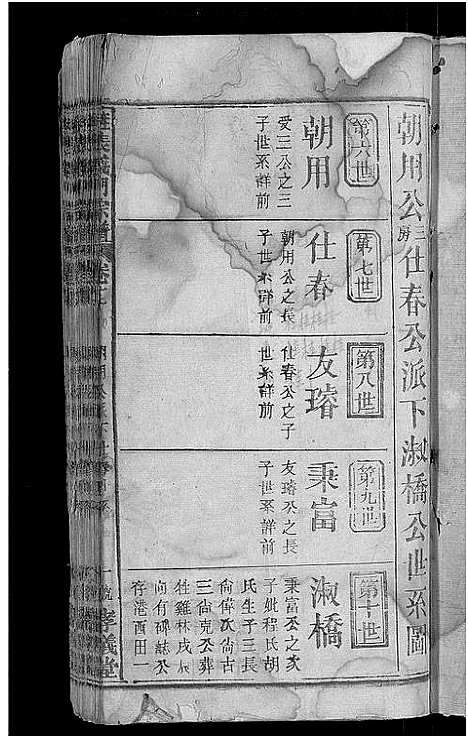 朝用公三房仕春公派下淑橋公世系圖
第六世
朝用
愛三公之三
子世系詳前
第七世
仕春
朝用公之長
子世系詳前
第八世
友璿
仕春公之子
世系詳前
第九世
秉富
友璿公之長
子世系詳前
第十世
淑橋
秉富公之次
子妣程氏胡
氏生子三長
尙偉次尙古
三尙克公葬
牲雞林戌辰
向有碑誌公
存港酉田一
孝義堂